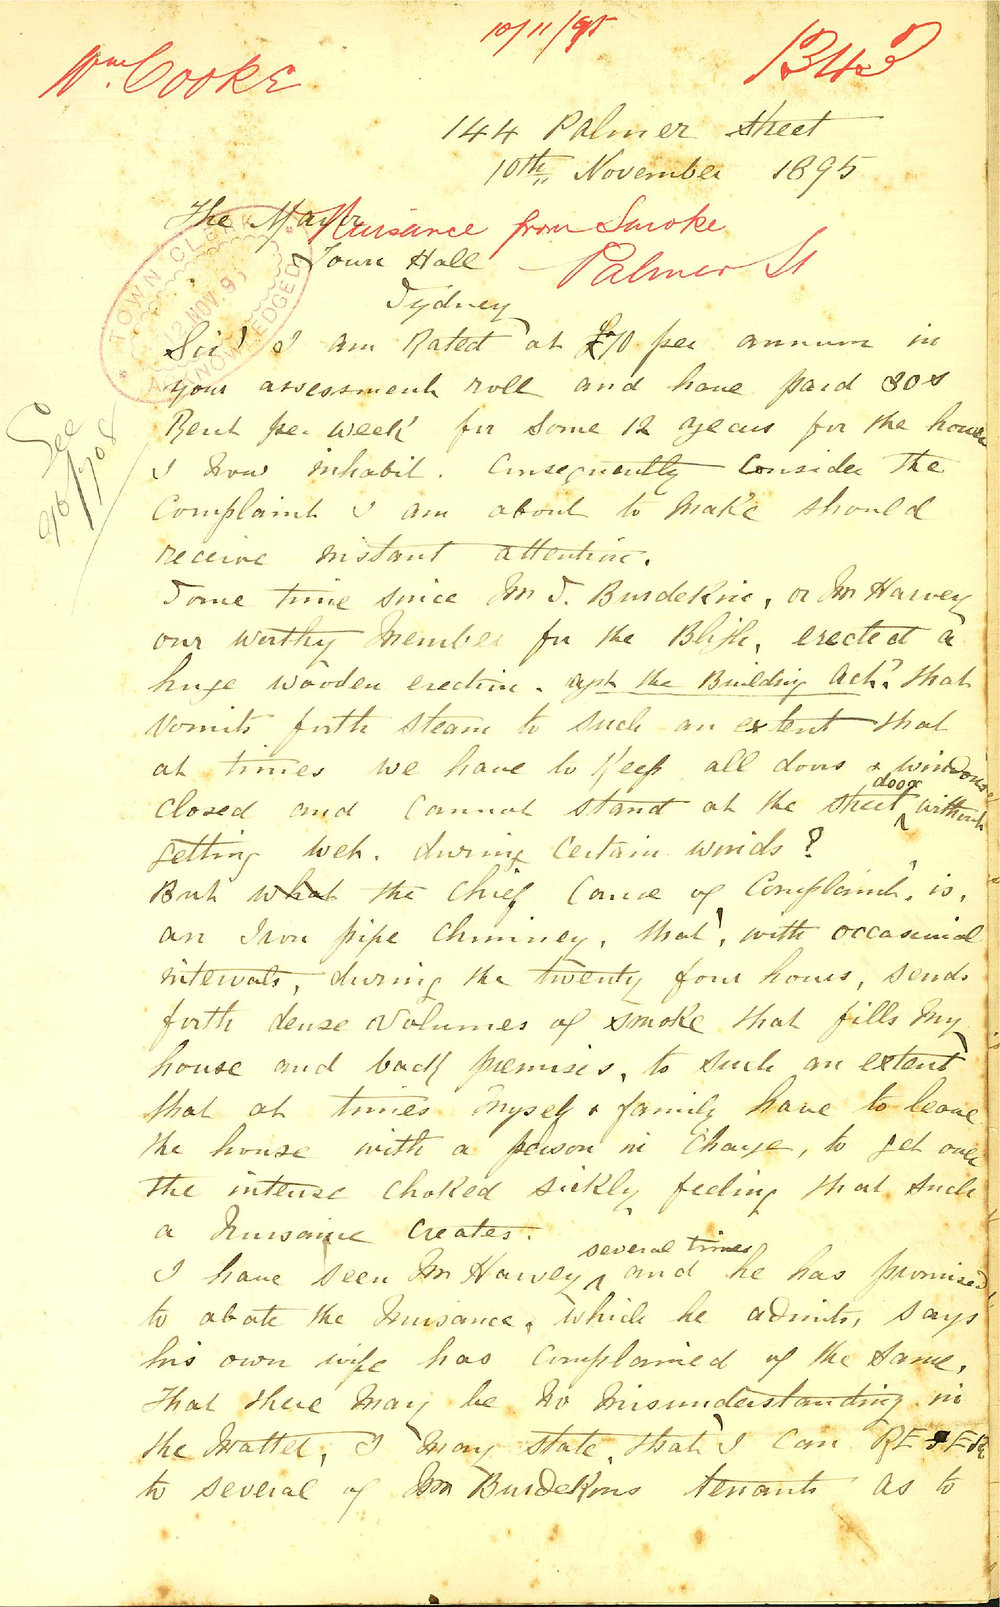 10/11/95
Wm. Cooke
1343
144 Palmer Street
10th November 1895
The Mayor
Nuisance from Smoke
Town Hall
Palmer St
Sydney
TOWN CLERK
12 NOV. 95
ACKNOWLEDGED
Sir! I am Rated at £70 per annum in
your assessment roll and have paid 30s
Rent per week for some 12 years for the house
I now inhabit. Consequently Consider the
Complaint I am about to make should
receive instant attention.
See
96/1708
Some time since Mr S. Burdekin, or Mr Harvey
our worthy Member for the Bligh, erected a
huge wooden erection. agst the Building Act? that
vomits forth steam to such an extent that
at times we have to Keep all doors & windows
closed and cannot stand at the street door without
getting wet. during certain winds?
But what the chief Cause of Complaint, is,
an Iron pipe Chimney, that, with occasional
intervals, during the twenty four hours, sends
forth dense volumes of smoke that fills my
house and back premises, to such an extent
that at times myself & family have to leave
the house with a person in charge, to get over
the intense choked sickly feeling that such
a Nuisance creates.
I have seen Mr Harvey several times and he has promised
to abate the Nuisance, which he admits, says
his own wife has complained of the same,
That there may be no misunderstanding in
the Matter, I may state, that I can REFER
to several of Mr Burdekins tenants as to